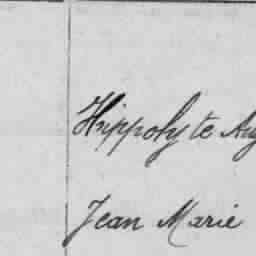 Hippolyte Aug
Jean Marie